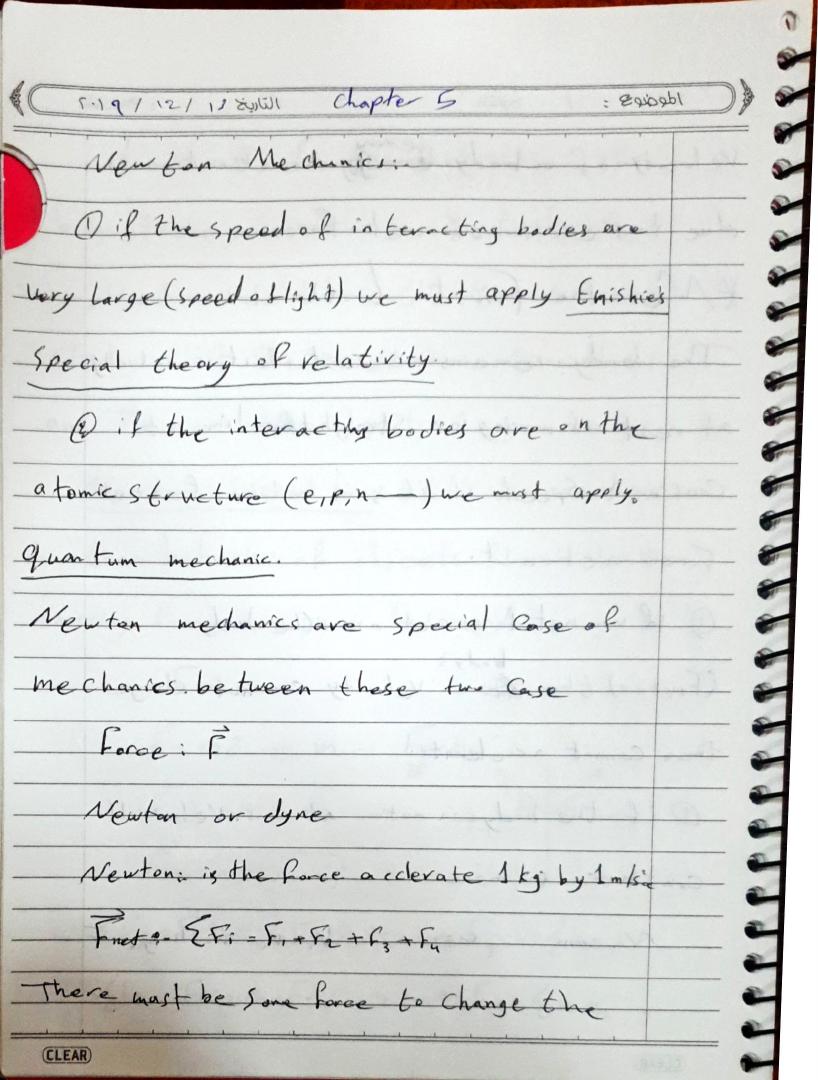 ١
الموضوع : Chapter 5 التاريخ ١٨ / ١٢ / ٢٠١٩
Newton Mechanics:-
① if the speed of interacting bodies are
very large (speed of light) we must apply Enishie's
Special theory of relativity.
② if the interacting bodies are on the
atomic structure (e, p, n —) we must apply.
quantum mechanic.
Newton mechanics are special Case of
mechanics. between these two Case
Force : F⃗
Newton or dyne
Newton:- is the force acclerate 1 kg by 1 m/s²
F⃗net :- ΣFi = F₁ + F₂ + F₃ + F₄
There must be some force to change the
CLEAR